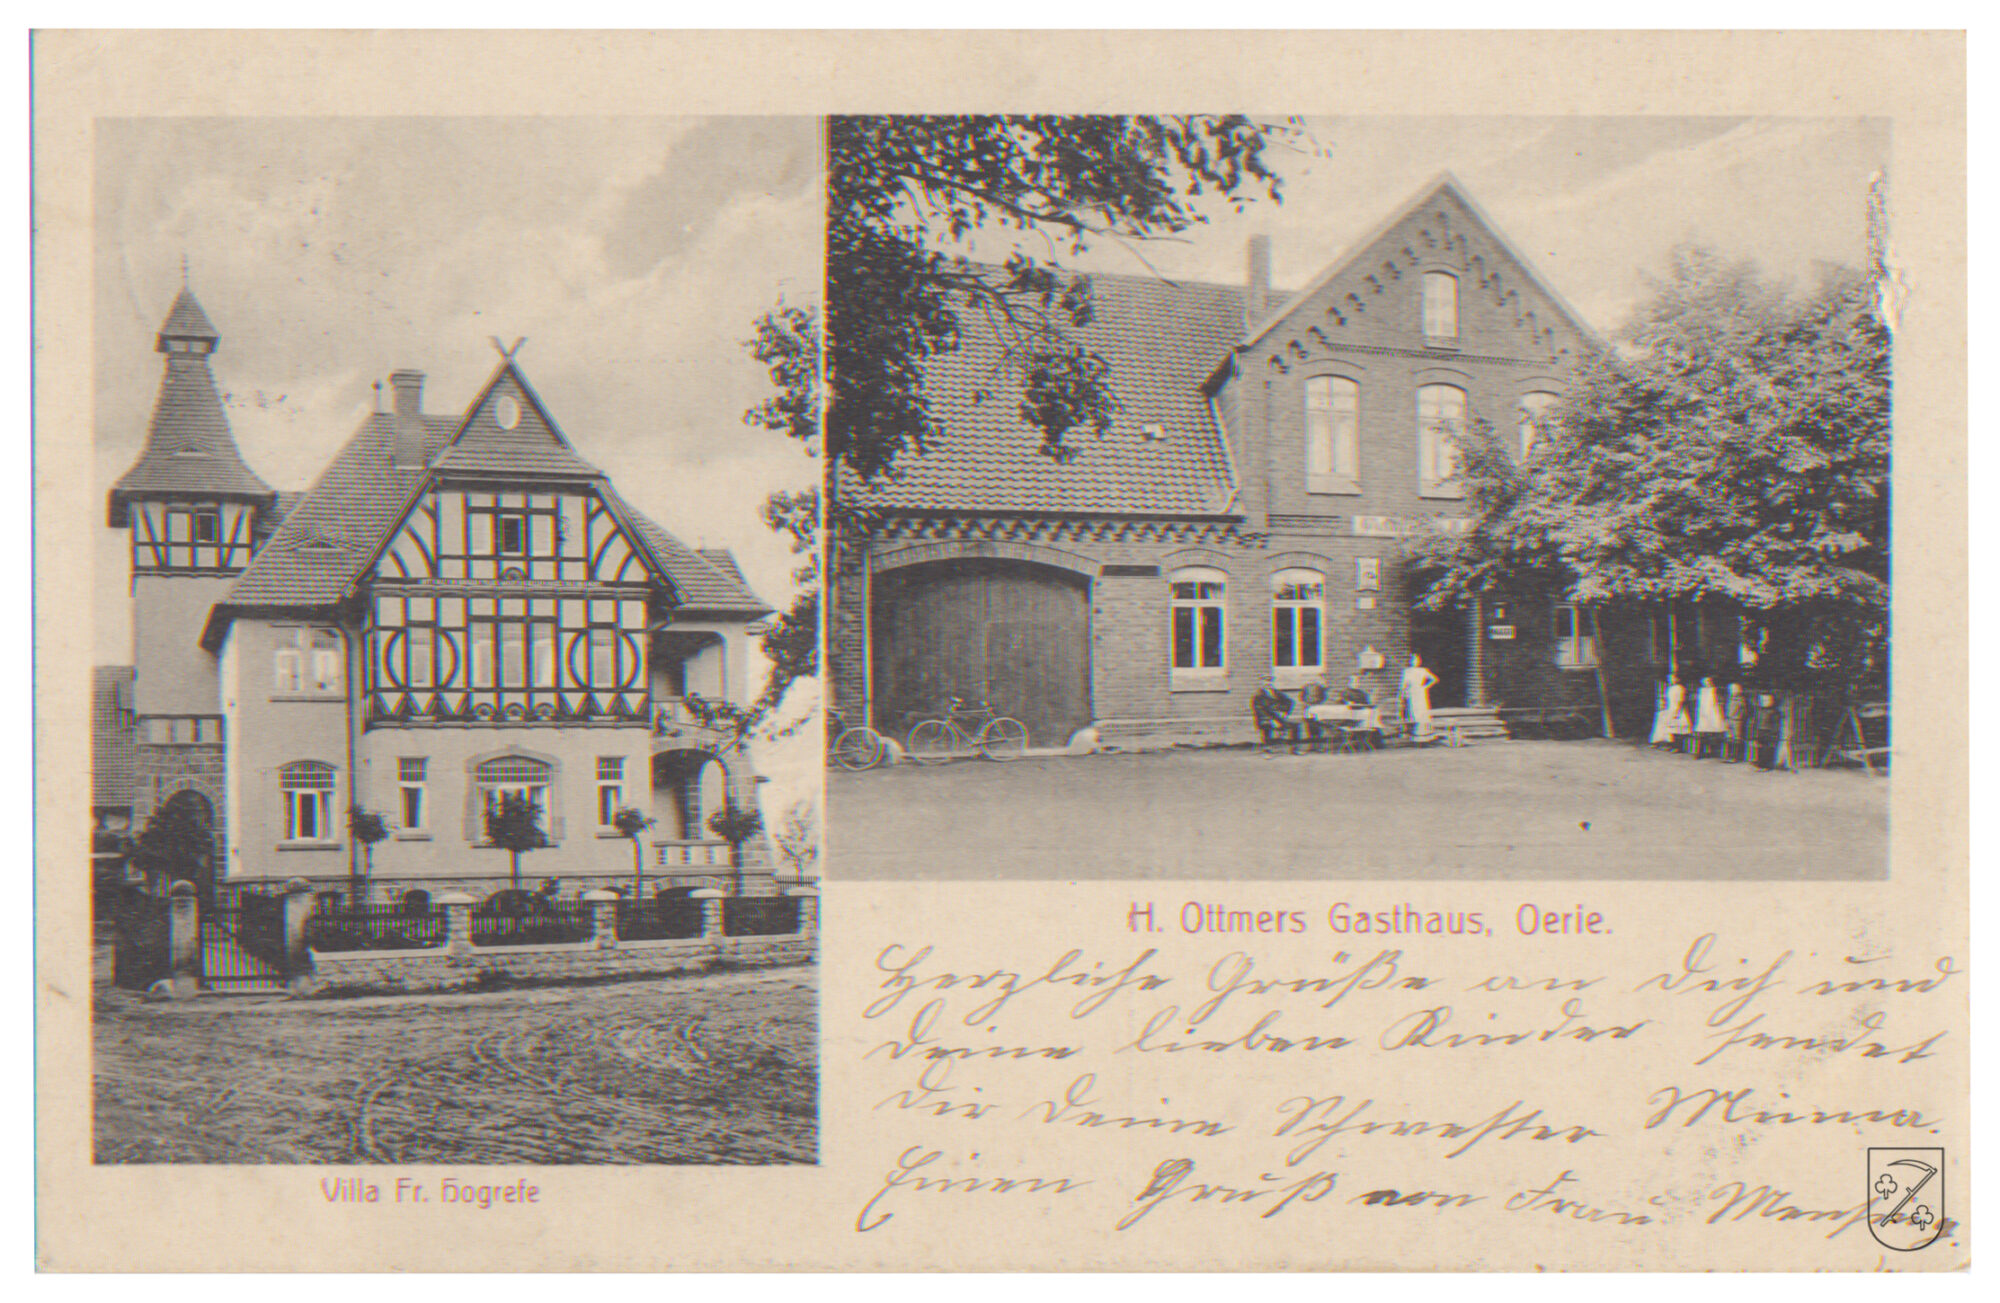 Villa Fr. Hogrefe
H. Ottmers Gasthaus, Oerie.
Herzliche Grüße an Dich und
deine lieben Kinder sendet
dir deine Schwester Minna.
Einen Gruß von Frau Mensing.